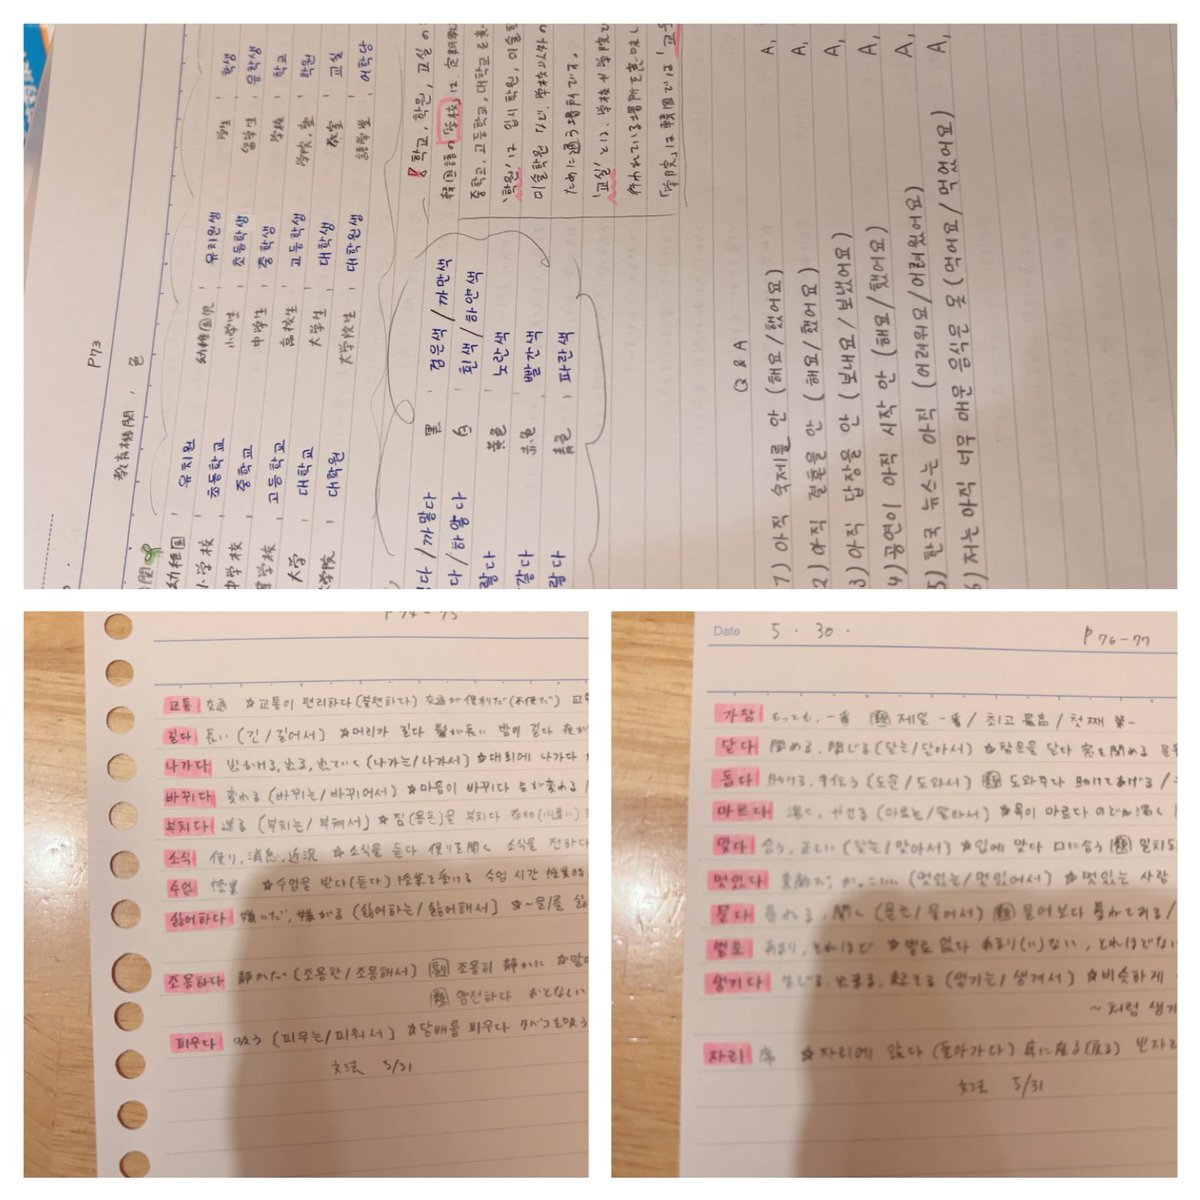 P73
教育機関、色
幼稚園 | 유치원 幼稚園児 | 유치원생 学生 | 학생
小学校 | 초등학교 小学生 | 초등학생 留学生 | 유학생
中学校 | 중학교 中学生 | 중학생 学校 | 학교
高等学校 | 고등학교 高校生 | 고등학생 学院, 塾 | 학원
大学 | 대학교 大学生 | 대학생 教室 | 교실
大学院 | 대학원 大学院生 | 대학원생 語学堂 | 어학당
학교, 학원, 교실の
韓国語の「学校」は、
중학교, 고등학교, 대학교を
'학원'は 입시학원, 미술
미술학원など、学校以外の
ために通う場所です。
'교실'とは、学校や学院で
行われている場所を意味し
「学院」は韓国では'교
/까맣다 黒 | 검은색/까만색
/하얗다 白 | 흰색/하얀색
랗다 黄色 | 노란색
갛다 赤色 | 빨간색
랗다 青色 | 파란색
Q & A
1) 아직 숙제를 안 (해요/했어요) A,
2) 아직 결혼을 안 (해요/했어요) A,
3) 아직 답장을 안 (보내요/보냈어요) A,
4) 공연이 아직 시작 안 (해요/했어요) A,
5) 한국 뉴스는 아직 (어려워요/어려웠어요) A,
6) 저는 아직 너무 매운 음식은 못 (먹어요/먹었어요) A,
P 74-75
교통 交通 ☆교통이 편리하다(불편하다) 交通が便利だ(不便だ)
길다 長い (긴/길어서) ☆머리가 길다 髪が長い 밤이 길다
나가다 出かける, 出る, 出ていく (나가는/나가서) ☆대회에 나가다
바뀌다 変わる (바뀌는/바뀌어서) ☆마음이 바뀌다 心が変わる
부치다 送る (부치는/부쳐서) ☆짐(용돈)을 부치다
소식 便り, 消息, 近況 ☆소식을 듣다 便りを聞く 소식을 전하다
수업 授業 ☆수업을 받다(듣다) 授業を受ける 수업 시간
싫어하다 嫌いだ, 嫌がる (싫어하는/싫어해서) ☆~을/를
조용하다 静かだ (조용한/조용해서) 副 조용히 静かに
類 얌전하다 おとなしい
피우다 吸う (피우는/피워서) ☆담배를 피우다 タバコを吸う
文法 5/31
Date 5 · 30 ·
P 76-77
가장 もっとも, 一番 類 제일 一番 / 최고 最高 / 첫째 第一
닫다 閉める, 閉じる (닫는/닫아서) ☆창문을 닫다 窓を閉める
돕다 助ける, 手伝う (도운/도와서) 類 도와주다 助けてあげる
마르다 渇く, 乾せる (마르는/말라서) ☆목이 마르다 のどが渇く
맞다 合う, 正しい (맞는/맞아서) ☆입에 맞다 口に合う 類 일치
멋있다 素敵だ, かっこいい (멋있는/멋있어서) ☆멋있는 사람
묻다 尋ねる, 聞く (묻는/물어서) 類 물어보다 尋ねてみる
별로 あまり, それほど ☆별로 없다 あまり(い)ない, それほどない
생기다 生じる, 出来る, 起きる (생기는/생겨서) ☆비슷하게
~처럼 생기
자리 席 ☆자리에 앉다(돌아가다) 席に座る(戻る) 빈자리
文法 5/31